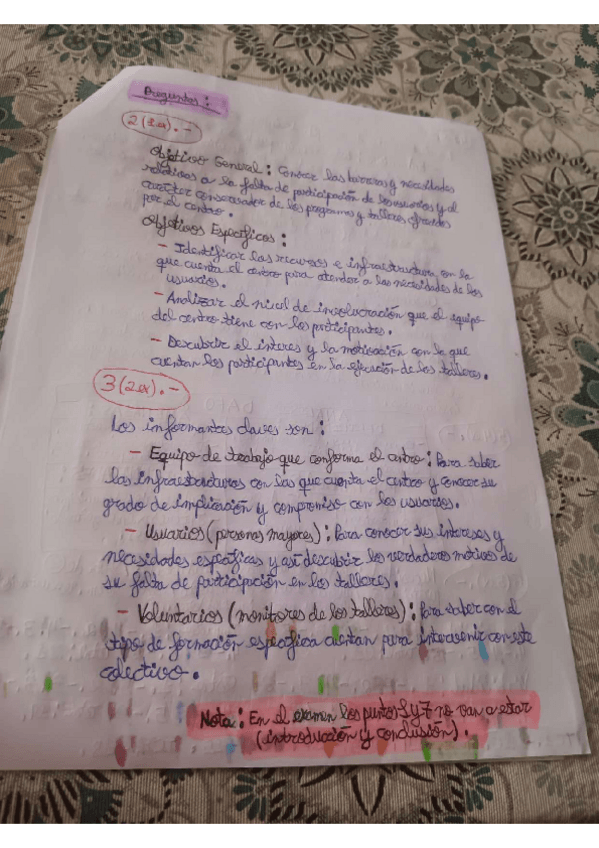 Preguntas:
2 (2ex).-
Objetivo General: Conocer las barreras y necesidades
relativas a la falta de participación de los usuarios y al
carácter conservador de los programas y talleres ofrecidos
por el centro.
Objetivos Específicos:
- Identificar las recursos e infraestructura, con la
que cuenta el centro para atender a las necesidades de los
usuarios.
- Analizar el nivel de involucración que el equipo
del centro tiene con los participantes.
- Descubrir el interes y la motivación con la que
cuentan los participantes en la ejecución de los talleres.
3 (2ex).-
Los informantes claves son:
- Equipo de trabajo que conforma el centro: Para saber
las infraestructuras con las que cuenta el centro y conocer su
grado de implicación y compromiso con los usuarios.
- Usuarios (personas mayores): Para conocer sus intereses y
necesidades específicas y así descubrir los verdaderos motivos de
su falta de participación en los tallares.
- Voluntarios (monitores de los talleres): Para saber con el
tipo de formación específica cuentan para intervenir con este
colectivo.
Nota: En el examen los puntos 1 y 7 no van a estar
(introducción y conclusión).